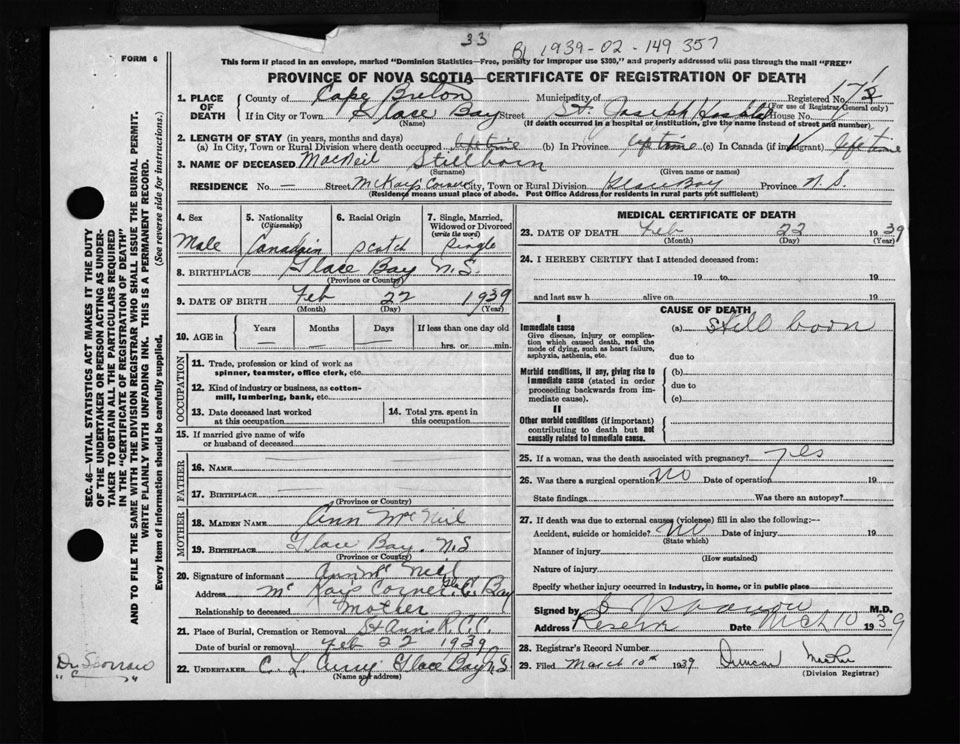 33
BL 1939-02-149 357
FORM 6
This form if placed in an envelope, marked "Dominion Statistics—Free, penalty for improper use $300," and properly addressed will pass through the mail "FREE"
PROVINCE OF NOVA SCOTIA—CERTIFICATE OF REGISTRATION OF DEATH
1. PLACE OF DEATH
County of Cape Breton Municipality of Registered No.
(For use of Registrar General only)
If in City or Town Glace Bay Street St Joseph Hospital House No.
(Name) (If death occurred in a hospital or institution, give the name instead of street and number)
2. LENGTH OF STAY (in years, months and days)
(a) In City, Town or Rural Division where death occurred lifetime (b) In Province lifetime (c) In Canada (if immigrant) lifetime
3. NAME OF DECEASED MacNeil Stillborn
(Surname) (Given name or names)
RESIDENCE No. — Street McKay's Corner City, Town or Rural Division Glace Bay Province N.S.
(Residency means usual place of abode. Post Office Address for residents in rural parts not sufficient)
4. Sex
Male
5. Nationality
(Citizenship)
Canadain
6. Racial Origin
Scotch
7. Single, Married, Widowed or Divorced
(write the word)
Single
8. BIRTHPLACE Glace Bay N.S.
(Province or Country)
9. DATE OF BIRTH Feb 22 1939
(Month) (Day) (Year)
10. AGE in
Years Months Days If less than one day old
— — — hrs. or min.
OCCUPATION
11. Trade, profession or kind of work as
spinner, teamster, office clerk, etc.
12. Kind of industry or business, as cotton-
mill, lumbering, bank, etc.
13. Date deceased last worked
at this occupation
14. Total yrs. spent in
this occupation
15. If married give name of wife
or husband of deceased
FATHER
16. NAME
17. BIRTHPLACE
(Province or Country)
MOTHER
18. MAIDEN NAME Ann McNeil
19. BIRTHPLACE Glace Bay. N.S
(Province or Country)
20. Signature of informant Ann Mc Neil
Address Mc Kays Corner Gl. Bay
Relationship to deceased Mother
21. Place of Burial, Cremation or Removal St Ann's R.C.C.
Date of burial or removal Feb 22 1939
22. UNDERTAKER C. L. Curry Glace Bay N.S.
(Name and address)
MEDICAL CERTIFICATE OF DEATH
23. DATE OF DEATH Feb 22 1939
(Month) (Day) (Year)
24. I HEREBY CERTIFY that I attended deceased from:
19 to 19
and last saw h alive on 19
CAUSE OF DEATH
I
Immediate cause
Give disease, injury or complication which caused death, not the mode of dying, such as heart failure, asphyxia, asthenia, etc.
(a) still born
due to
Morbid conditions, if any, giving rise to immediate cause (stated in order proceeding backwards from immediate cause).
(b)
due to
(c)
II
Other morbid conditions (if important) contributing to death but not causally related to immediate cause.
25. If a woman, was the death associated with pregnancy? yes
26. Was there a surgical operation? No Date of operation 19
State findings Was there an autopsy?
27. If death was due to external causes (violence) fill in also the following:—
Accident, suicide or homicide? NO Date of injury 19
(State which)
Manner of injury
(How sustained)
Nature of injury
Specify whether injury occurred in industry, in home, or in public place
Signed by M.D.
Address Reserve Date Mch 10 1939
28. Registrar's Record Number
29. Filed March 10th 1939 Duncan
(Division Registrar)
SEC. 46—VITAL STATISTICS ACT MAKES IT THE DUTY
OF THE UNDERTAKER OR PERSON ACTING AS UNDER-
TAKER TO OBTAIN ALL THE PARTICULARS REQUIRED
IN THE "CERTIFICATE OF REGISTRATION OF DEATH"
AND TO FILE THE SAME WITH THE DIVISION REGISTRAR WHO SHALL ISSUE THE BURIAL PERMIT.
WRITE PLAINLY WITH UNFADING INK. THIS IS A PERMANENT RECORD.
Every item of information should be carefully supplied. (See reverse side for instructions.)